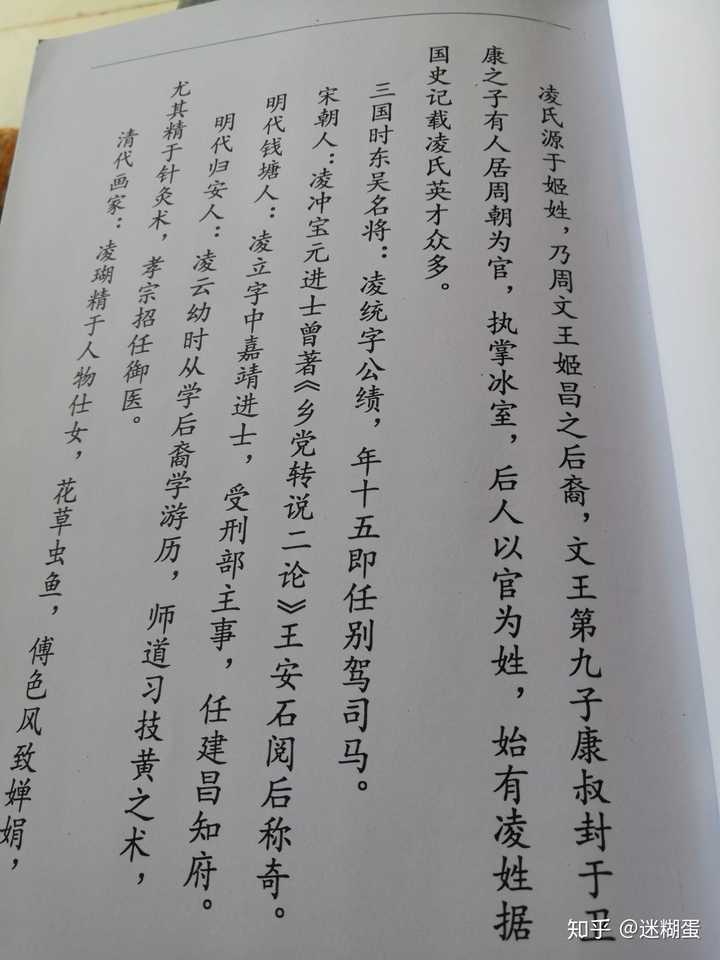 凌氏源于姬姓，乃周文王姬昌之后裔，文王第九子康叔封于卫
康之子有人居周朝为官，执掌冰室，后人以官为姓，始有凌姓据
国史记载凌氏英才众多。
三国时东吴名将：凌统字公绩，年十五即任别驾司马。
宋朝人：凌冲宝元进士曾著《乡党转说二论》王安石阅后称奇。
明代钱塘人：凌立字中嘉靖进士，受刑部主事，任建昌知府。
明代归安人：凌云幼时从学后裔学游历，师道习技黄之术，
尤其精于针灸术，孝宗招任御医。
清代画家：凌瑚精于人物仕女，花草虫鱼，傅色风致婵娟，
知乎 @迷糊蛋